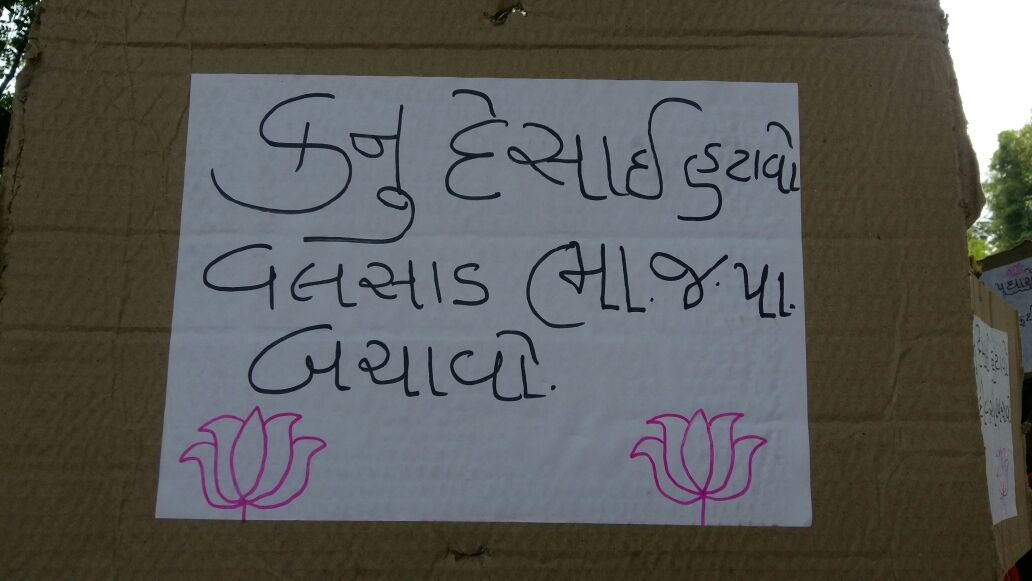 કનુ દેસાઈ હટાવો
વલસાડ ભા.જ.પા.
બચાવો.